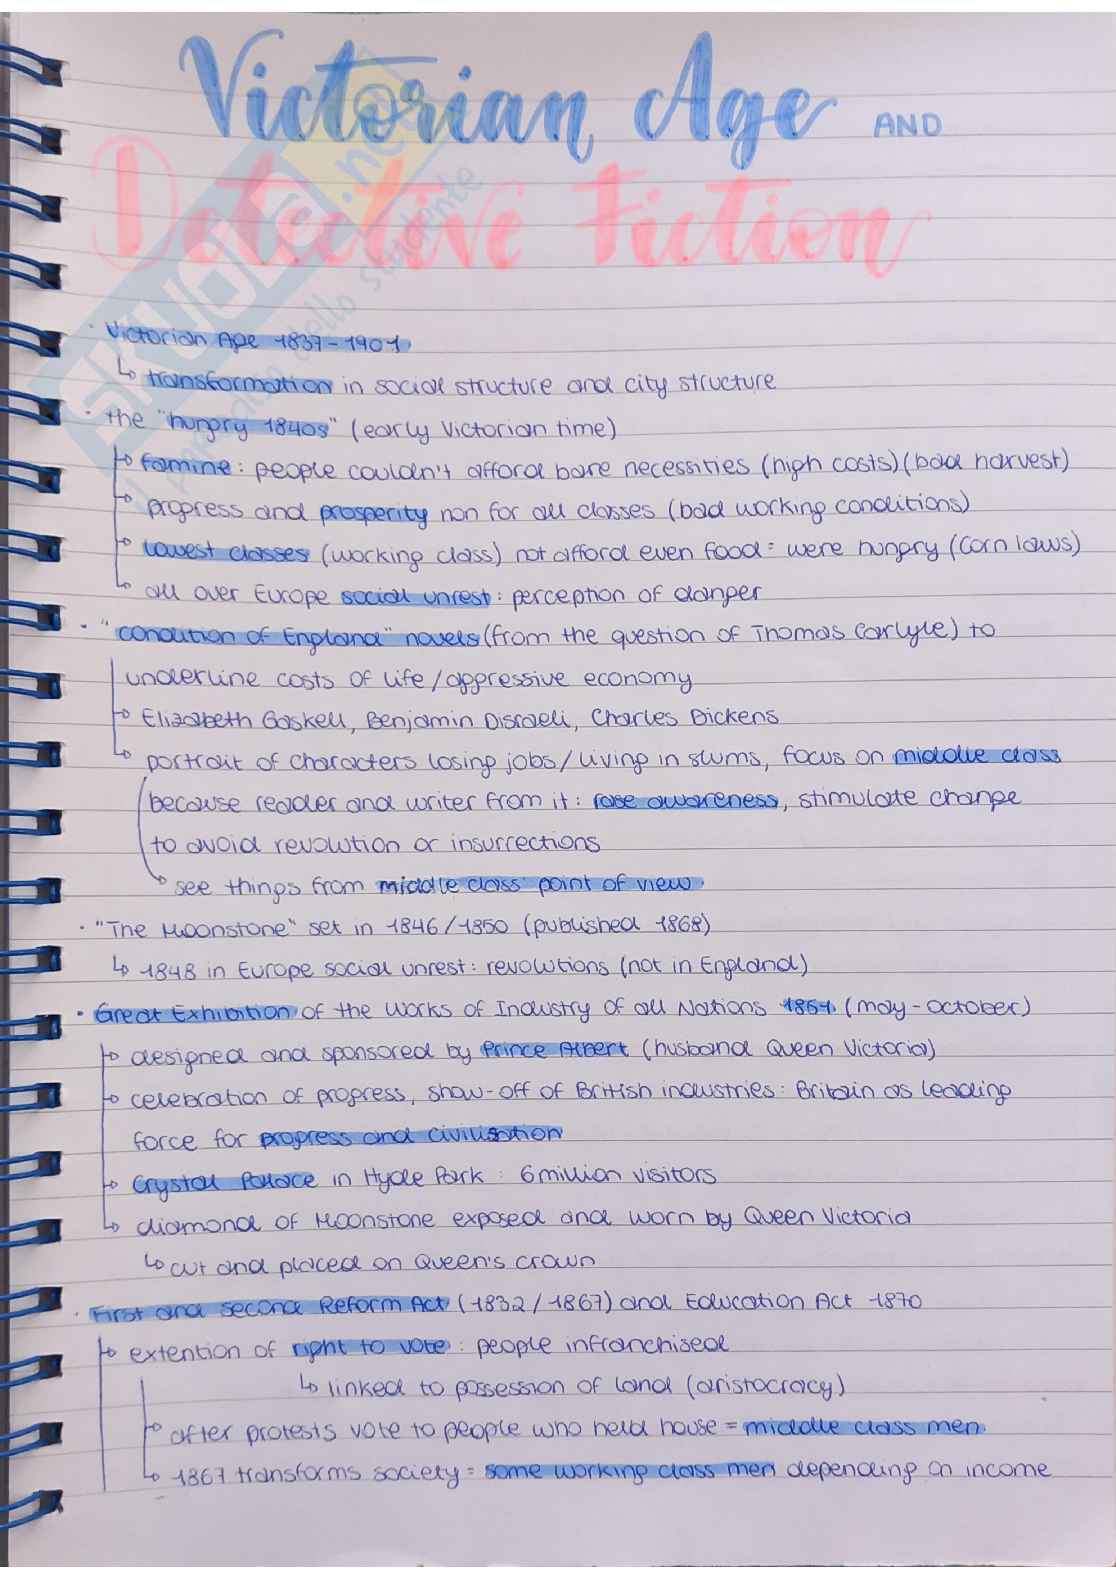 Victorian Age AND
Detective Fiction
SKUOLA.net
il paradiso dello studente
· Victorian Age 1837-1901
↳ transformation in social structure and city structure
· the "hungry 1840s" (early Victorian time)
↳ famine: people couldn't afford bare necessities (high costs)(bad harvest)
↳ progress and prosperity non for all classes (bad working conditions)
↳ lowest classes (working class) not afford even food = were hungry (Corn laws)
↳ all over Europe social unrest: perception of danger
· "condition of England" novels (from the question of Thomas Carlyle) to
underline costs of life/aggressive economy
↳ Elizabeth Gaskell, Benjamin Disraeli, Charles Dickens
↳ portrait of characters losing jobs/living in slums, focus on middle class
because reader and writer from it: rose awareness, stimulate change
to avoid revolution or insurrections
↳ see things from middle class point of view
· "The Moonstone" set in 1846/1850 (published 1868)
↳ 1848 in Europe social unrest: revolutions (not in England)
· Great Exhibition of the Works of Industry of all Nations 1851 (may-october)
↳ designed and sponsored by Prince Albert (husband Queen Victoria)
↳ celebration of progress, show-off of British industries: Britain as leading
force for progress and civilisation
↳ Crystal Palace in Hyde Park: 6 million visitors
↳ diamond of Moonstone exposed and worn by Queen Victoria
↳ cut and placed on Queen's crown
· First and second Reform Act (1832/1867) and Education Act 1870
↳ extention of right to vote: people infranchised
↳ linked to possession of land (aristocracy)
↳ after protests vote to people who held house = middle class men
↳ 1867 transforms society = some working class men depending on income